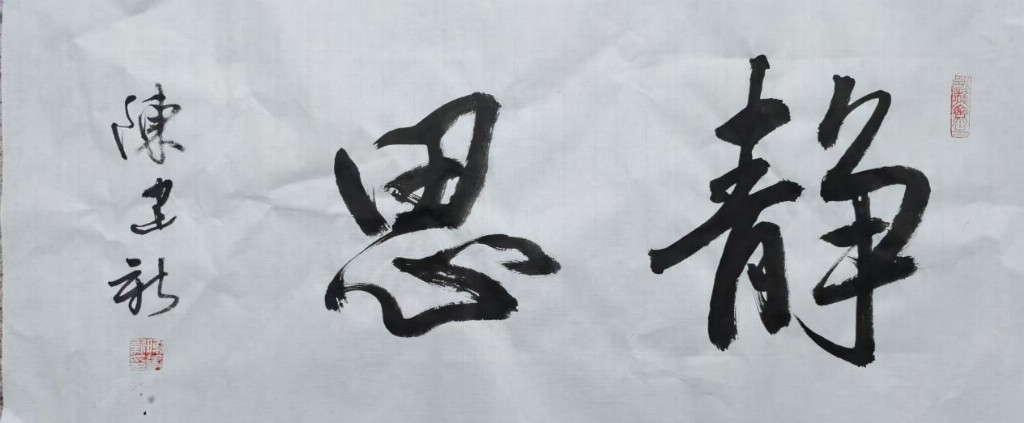 静思
陳建新